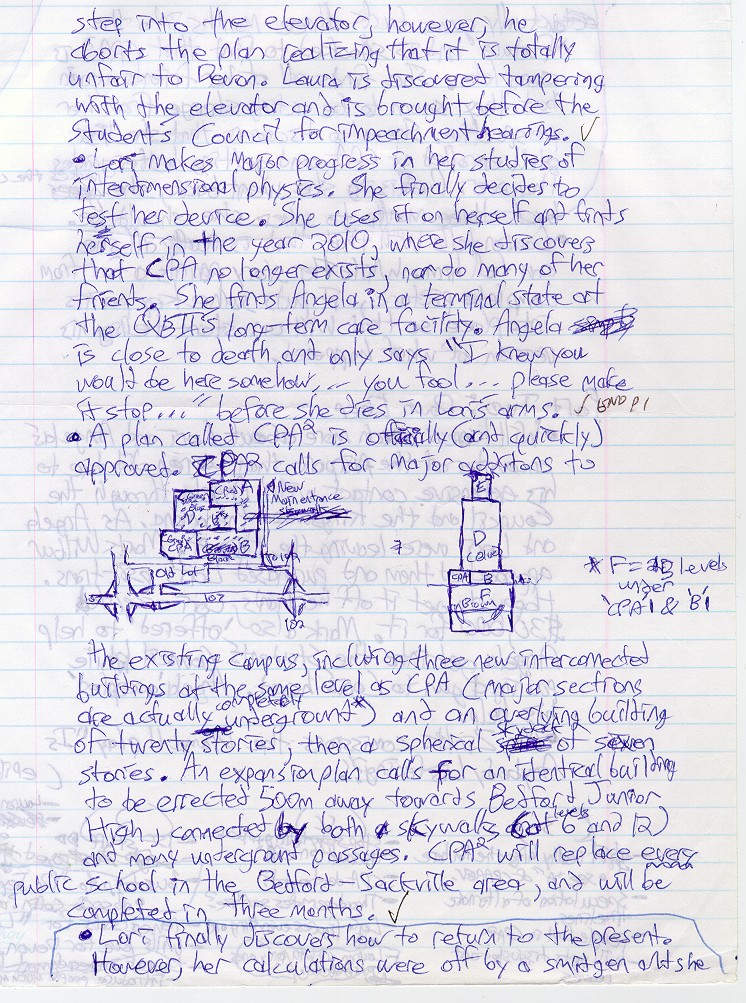 step into the elevator, however, he
aborts the plan realizing that it is totally
unfair to Devon. Laura is discovered tampering
with the elevator and is brought before the
Student's Council for impeachment hearings. ✓
• Lori makes major progress in her studies of
interdimensional physics. She finally decides to
test her device. She uses it on herself and finds
herself in the year 2010, where she discovers
that CPA no longer exists, nor do many of her
friends. She finds Angela in a terminal state at
the QEII'S long-term care facility. Angela
is close to death and only says "I knew you
would be here somehow, ... you fool... please make
it stop..." before she dies in Lori's arms. ✓ END P1
• A plan called CPA² is officially (and quickly)
approved. CPA² calls for major additons to
New
Main entrance
E
D
(Blue)
CPA B
F
Brown
CPA
B
Old Lot
102
102
* F = levels
under
'CPA' & 'B'
the existing campus, including three new interconnected
buildings at the same level as CPA (major sections
are actually completely underground*) and an overlying building
of twenty stories, then a spherical skydeck of seven
stories. An expansion plan calls for an identical building
to be errected 500m away towards Bedford Junior
High, connected by both skywalks (at levels 6 and 12)
and many undergrount passages. CPA² will replace every
public school in the Bedford-Sackville area, and will be
completed in three months. ✓
• Lori finally discovers how to return to the present.
However, her calculations were off by a smidgen and she